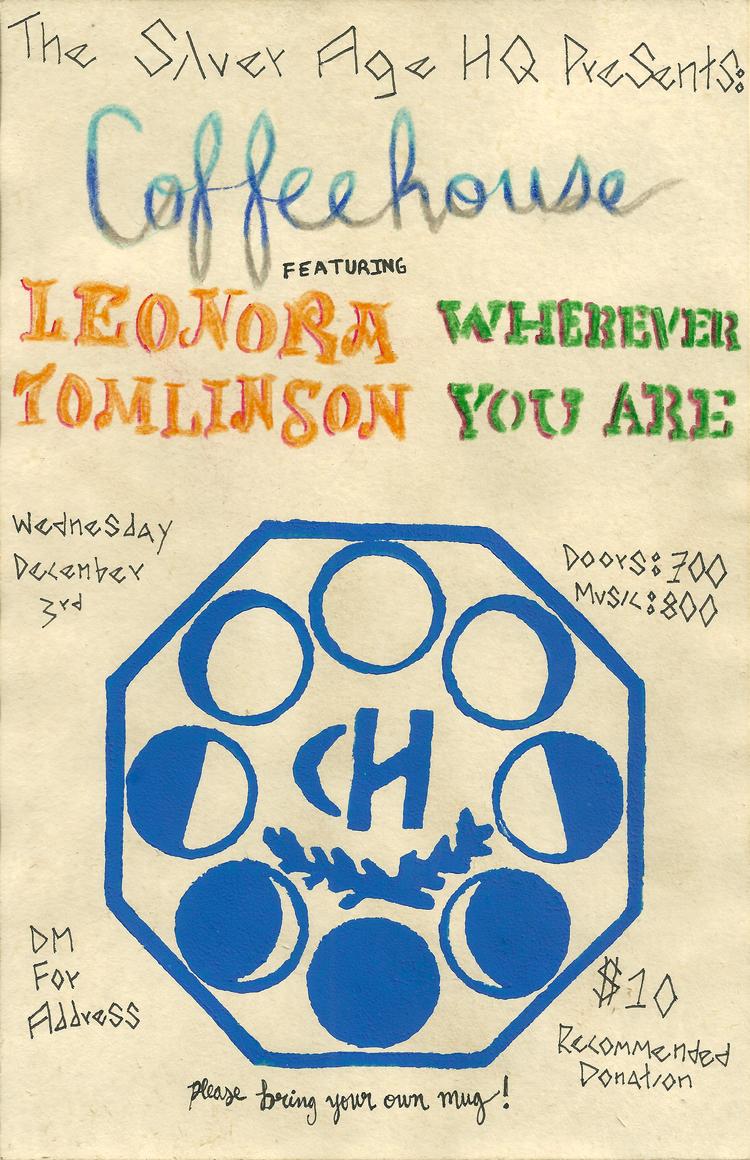 The Silver Age HQ Presents:
Coffeehouse
FEATURING
LEONORA
TOMLINSON
WHEREVER
YOU ARE
Wednesday
December
3rd
Doors: 700
Music: 800
CH
DM
For
Address
$10
Recommended
Donation
please bring your own mug!